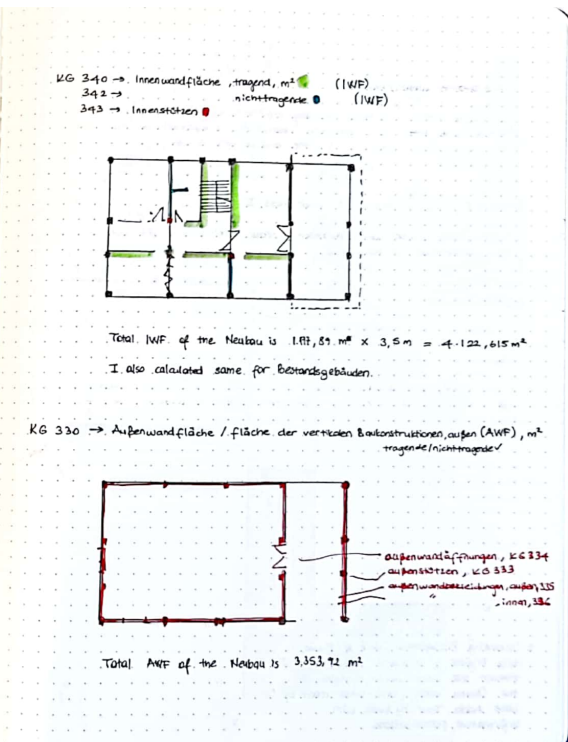 KG 340 → Innenwandfläche, tragend, m² (IWF)
342 → nichttragende (IWF)
343 → Innenstützen
Total IWF of the Neubau is 1.177,89 m² x 3,5m = 4.122,615m²
I also calculated same for Bestandsgebäuden.
KG 330 → Außenwandfläche / fläche der vertikalen Baukonstruktionen, außen (AWF), m²
tragende/nichttragende✓
außenwandöffnungen, KG334
außenstützen, KG 333
außenwandbekleidungen, außen, 335
" , innen, 336
Total AWF of the Neubau is 3,353,92 m²